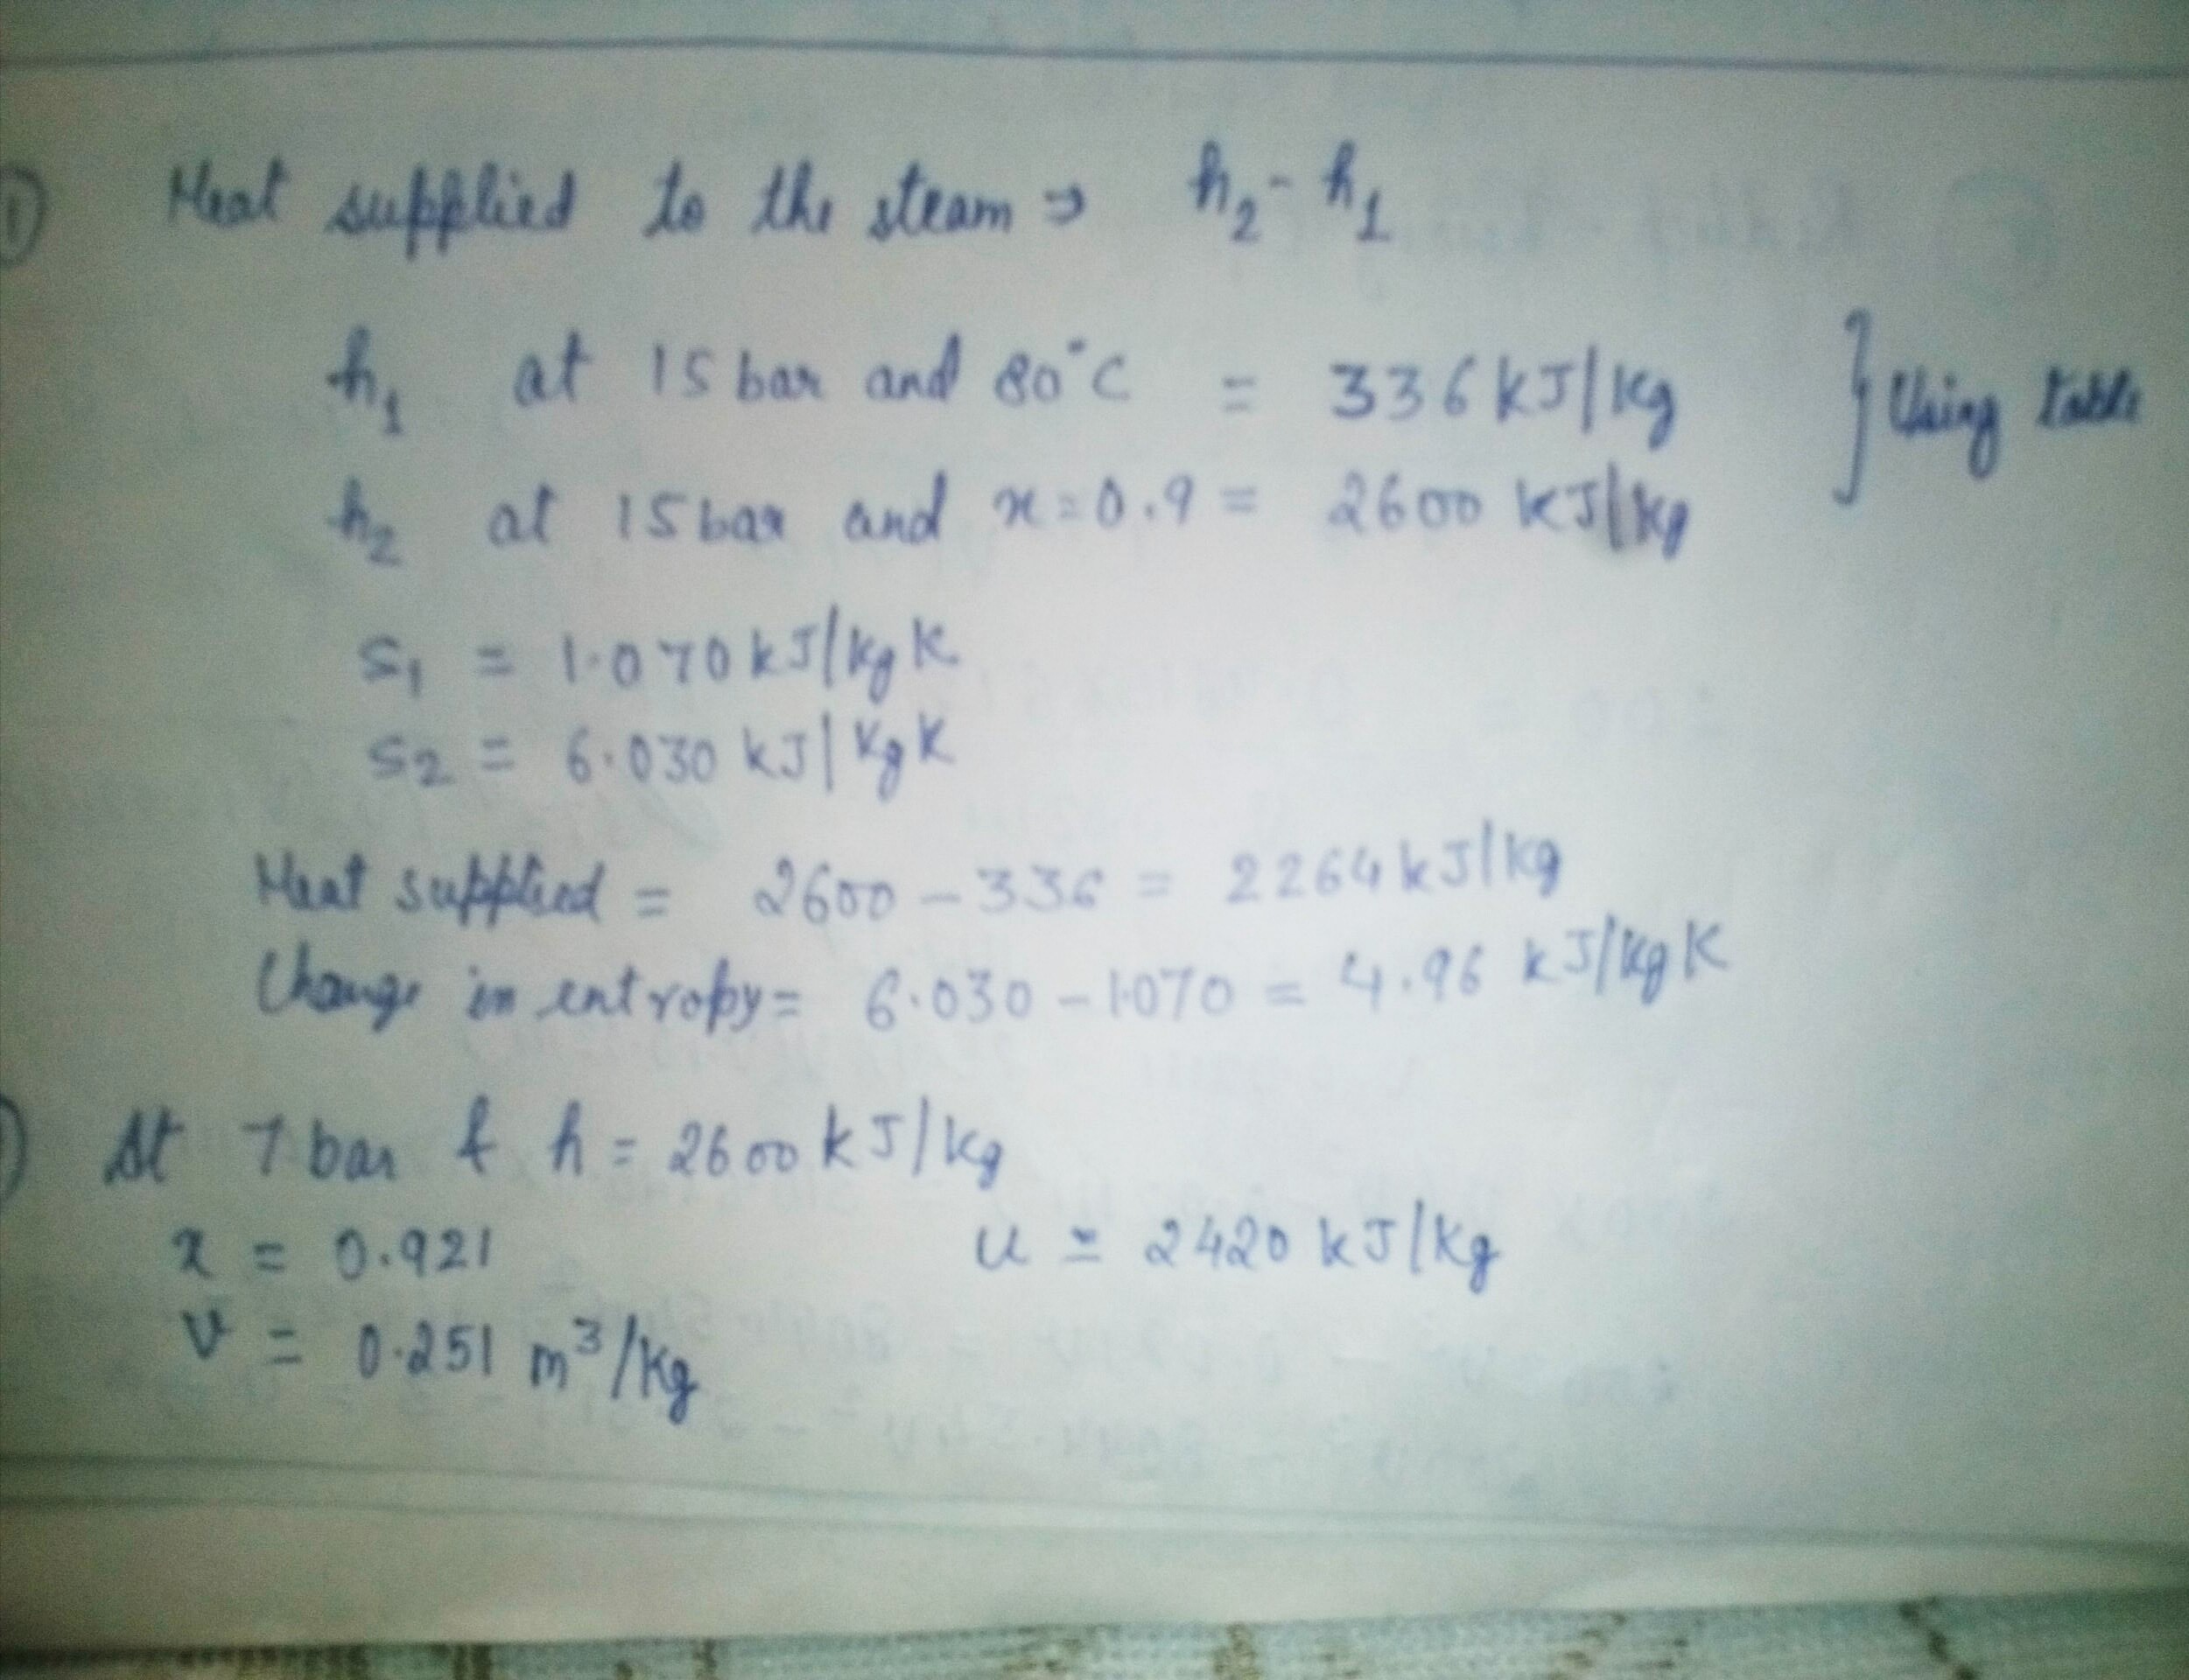 ① Heat supplied to the steam ⇒ h₂ - h₁
h₁ at 15 bar and 80°C = 336 kJ/kg } Using table
h₂ at 15 bar and x=0.9 = 2600 kJ/kg
S₁ = 1.070 kJ/kg K
S₂ = 6.030 kJ/kg K
Heat supplied = 2600 - 336 = 2264 kJ/kg
Change in entropy = 6.030 - 1.070 = 4.96 kJ/kg K
At 7 bar & h = 2600 kJ/kg
x = 0.921 u = 2420 kJ/kg
v = 0.251 m³/kg